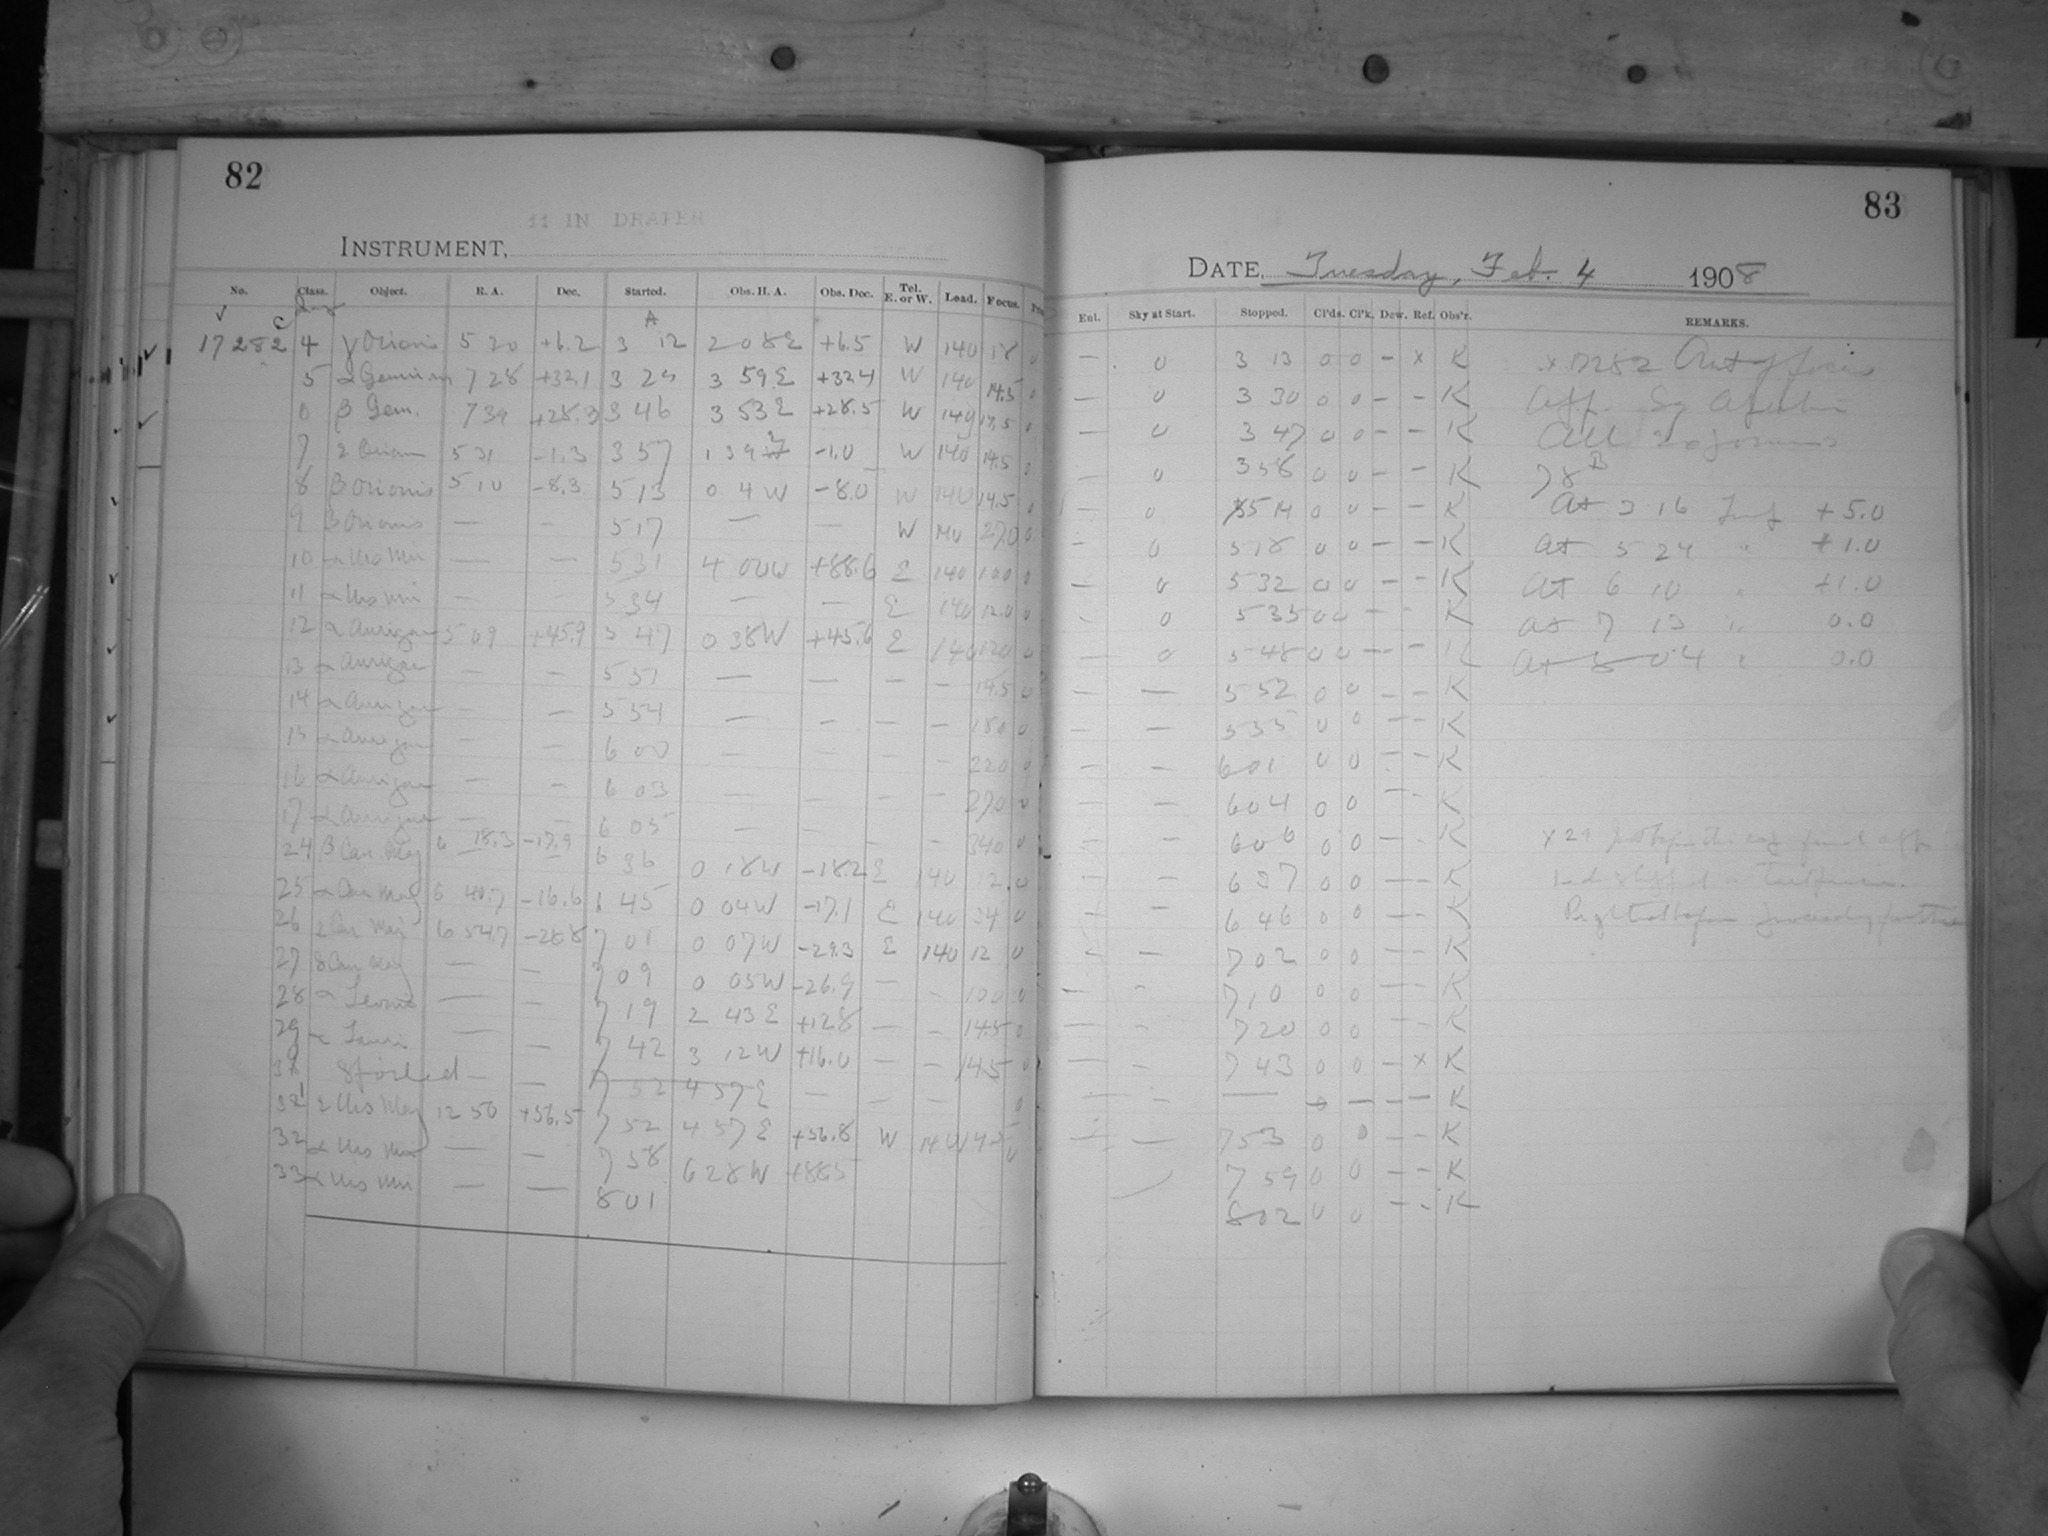 82
11 IN DRAPER
INSTRUMENT,
No. Class. Object. R. A. Dec. Started. Obs. H. A. Obs. Dec. Tel. E. or W. Load. Focus.
A
17282 4 γ Orionis 5 20 +6.2 3 12 2 08 E +6.5 W 140 18 0
5 α Geminorum 7 28 +32.1 3 29 3 59 E +32.4 W 140 14.5 0
β Gem. 7 39 +28.3 3 46 3 53 E +28.5 W 140 0
7 5 31 -1.3 3 57 1 39 -1.0 W 140 14.5 0
8 β Orionis 5 10 -8.3 5 13 0 4 W -8.0 W 140 14.5 0
9 β Orionis — — 5 17 — — W 140 27.0 0
10 α Urs Min — — 5 31 4 00 W +88.6 E 140 10.0 0
11 α Urs Min — — 5 34 — — E 140 12.0 0
12 α Aurigae 5 09 +45.9 5 47 0 38 W +45.6 E 140 12.0 0
13 α Aurigae — — 5 51 — — — — 14.5 0
14 α Aurigae — — 5 54 — — — — 18.0 0
15 α Aurigae — — 6 00 — — — — 22.0 0
16 α Aurigae — — 6 03 — — — — 27.0 0
17 α Aurigae — — 6 05 — — — — 34.0 0
24 β Can Maj 6 18.3 -17.9 6 36 0 18 W -18.2 E 140 12.0
25 α Can Maj 6 40.7 -16.6 6 45 0 04 W -17.1 E 140 0
26 Can Maj 6 54.7 -28.8 7 01 0 07 W -29.3 E 140 12 0
27 δ Can Maj — — 7 09 0 05 W -26.9 — — 10.0 0
28 α Leonis — — 7 19 2 43 E +12.8 — — 14.5 0
29 α Tauri — — 7 42 3 12 W +16.0 — — 14.5 0
Spoiled — — 7 52 4 57 E — — — 0
31 ε Urs Maj 12 50 +56.5 7 52 4 57 E +56.8 W 140 14.5 0
32 α Urs Min — — 7 58 6 28 W +88.5
33 α Urs Min — — 8 01
83
DATE, Tuesday, Feb. 4 1908
Ent. Sky at Start. Stopped. Cl'ds. Cl'k. Dew. Ref. Obs'r. REMARKS.
— 0 3 13 0 0 – × K × 17282 Out of focus
— 0 3 30 0 0 – – K
— 0 3 47 0 0 – – K All
— 0 3 58 0 0 – – K
— 0 5 14 0 0 – – K At 3 16 +5.0
— 0 5 18 0 0 – – K At 5 24 " +1.0
— 0 5 32 0 0 – – K At 6 10 " +1.0
0 5 35 0 0 – – K At 7 13 " 0.0
— 0 5 48 0 0 – – K At 8 04 " 0.0
— — 5 52 0 0 – – K
— — 5 55 0 0 – – K
— — 6 01 0 0 – – K
— — 6 04 0 0 – – K
— — 6 06 0 0 – – K × 29
— — 6 37 0 0 – – K
— — 6 46 0 0 – – K
— — 7 02 0 0 – – K
— – 7 10 0 0 – – K
— – 7 20 0 0 – – K
— – 7 43 0 0 – × K
— – — 0 – – – K
— — 7 53 0 0 – – K
7 59 0 0 – – K
8 02 0 0 – – K